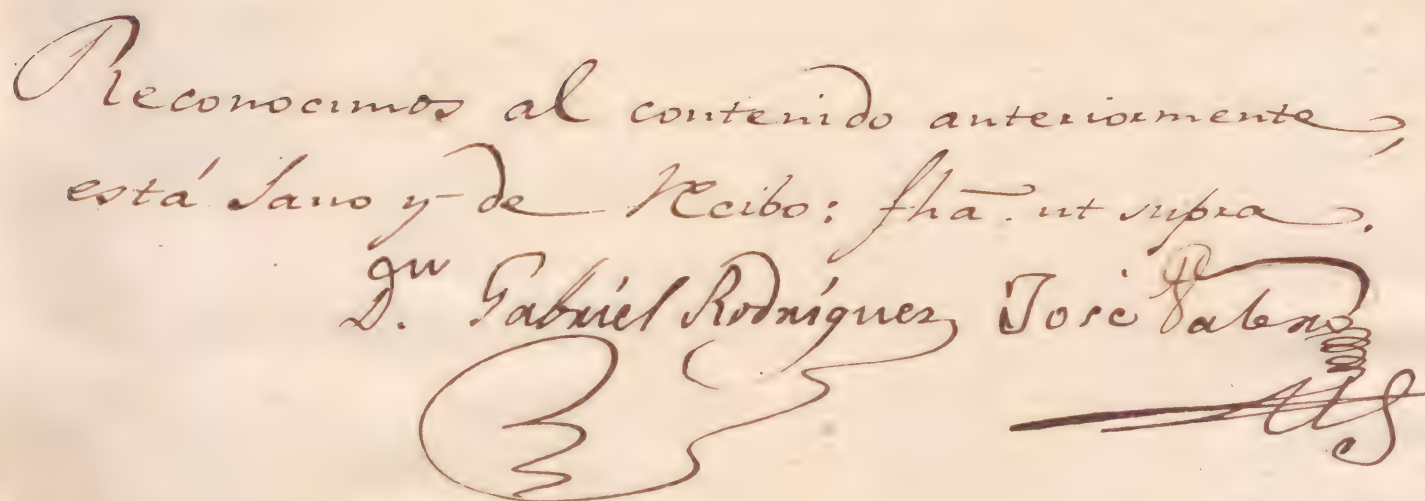 Reconocimos al contenido anteriormente,
está sano y de recibo: fha. ut supra.
Dn. Gabriel Rodríguez José Valero